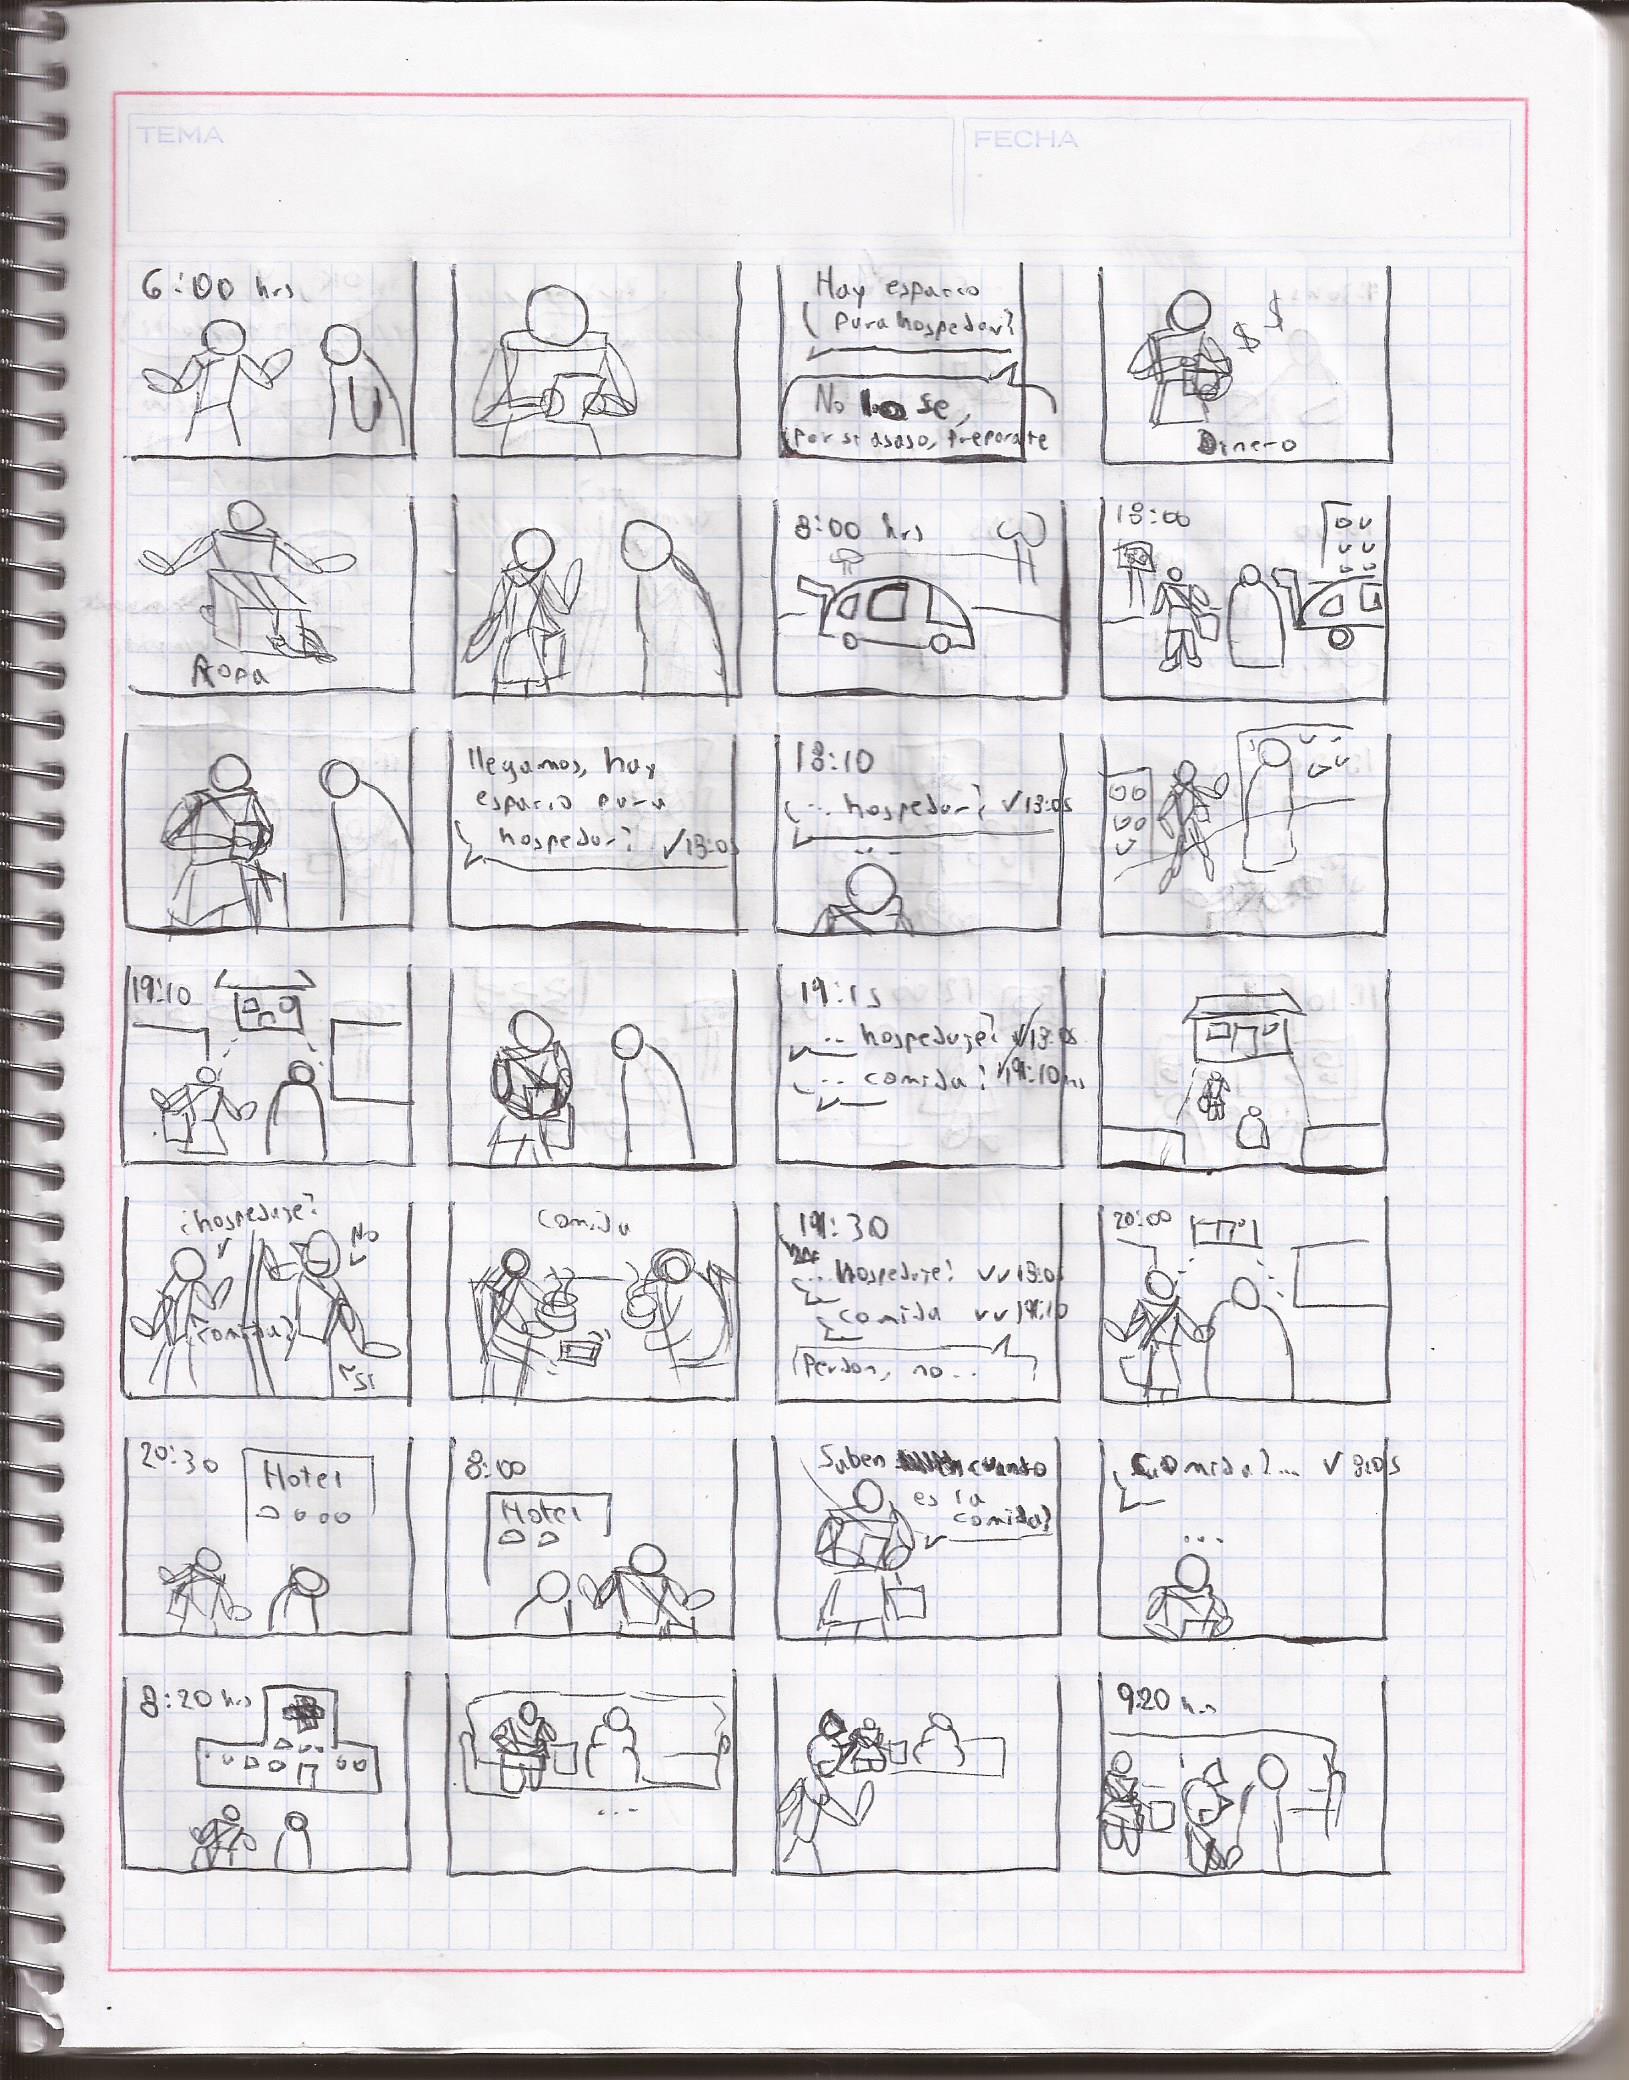 TEMA
FECHA
6:00 hrs
Hay espacio
para hospedar?
No lo se,
por si asaso, preparate
$ $
Dinero
Ropa
8:00 hrs
18:00
llegamos, hay
espacio para
hospedar? ✓18:05
18:10
... hospedar? ✓18:05
...
19:10
19:15
.. hospedaje? ✓18:05
... comida? ✓19:10 hrs
¿hospedaje?
No
¿comida?
Si
Comida
19:30
... hospedaje? ✓✓18:05
comida ✓✓19:10
Perdon, no...
20:00
20:30
Hotel
8:00
Hotel
Saben cuando
es la
comida?
Comida?... ✓8:05
...
8:20 hrs
...
9:20 hrs